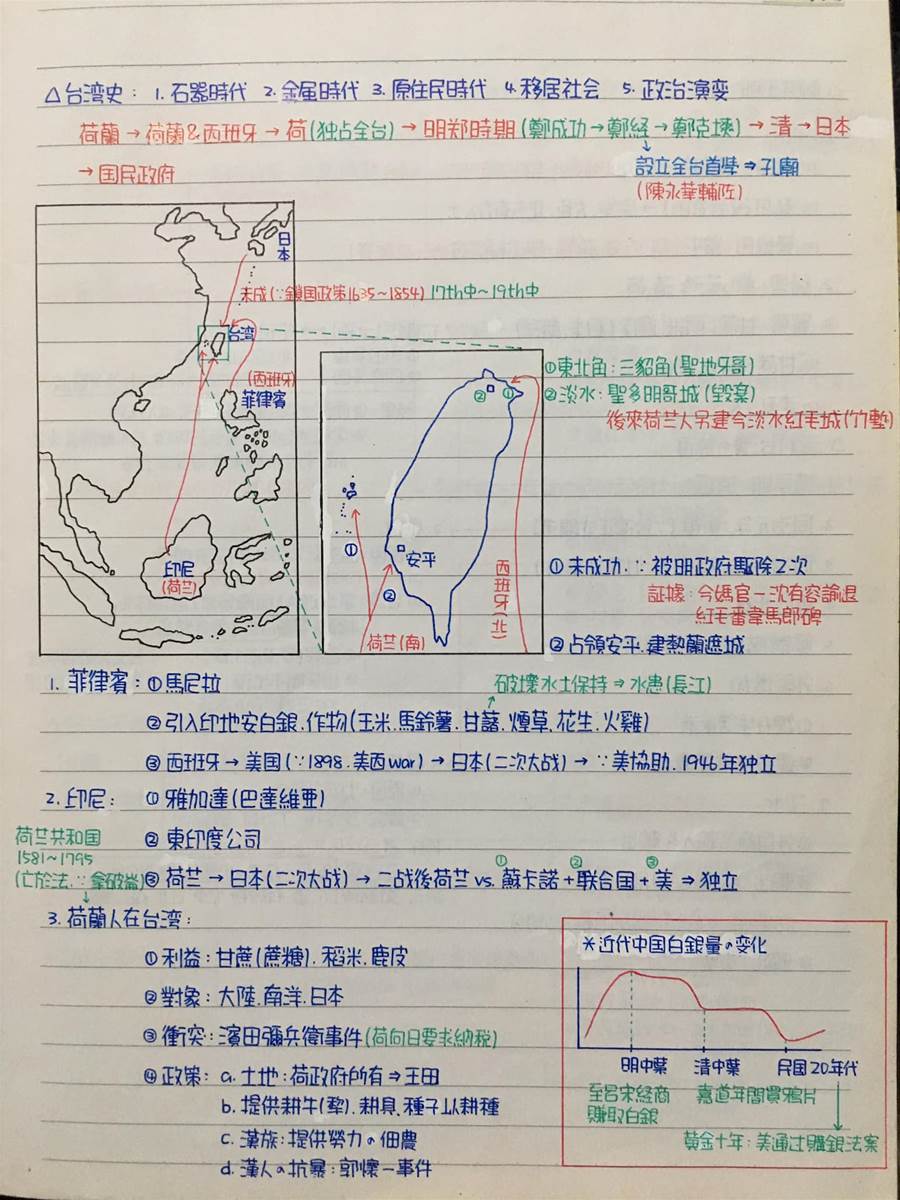 △台湾史: 1. 石器時代 2. 金属時代 3. 原住民時代 4. 移居社会 5. 政治演变
荷蘭→荷蘭&西班牙→荷(独占全台)→明郑時期(鄭成功→鄭経→鄭克塽)→清→日本
→国民政府
設立全台首學⇒孔廟
(陳永華輔佐)
日本
未成(∵鎖国政策1635~1854) 17th中~19th中
台湾
(西班牙)
菲律賓
印尼
(荷兰)
①東北角:三貂角(聖地牙哥)
②淡水:聖多明哥城(毀棄)
後來荷兰人另建今淡水紅毛城(竹塹)
② ①
①
安平
②
荷兰(南)
西班牙(北)
①未成功.∵被明政府駆除2次
証據:今媽宮一次有容諭退
紅毛番韋馬郎碑
②占領安平.建熱蘭遮城
1. 菲律賓:①馬尼拉
破壞水土保持⇒水患(長江)
②引入印地安白銀.作物(玉米.馬鈴薯.甘藷.煙草.花生.火雞)
③西班牙→美国(∵1898.美西war)→日本(二次大战)→∵美協助.1946年独立
2. 印尼: ①雅加達(巴達維亜)
荷兰共和国
1581~1795
(亡於法.∵拿破崙)
②東印度公司
① ② ③
③荷兰→日本(二次大战)→二战後荷兰vs.蘇卡諾+联合国+美⇒独立
3. 荷蘭人在台湾:
①利益:甘蔗(蔗糖).稻米.鹿皮
②對象:大陸.南洋.日本
③衝突:濱田彌兵衛事件(荷向日要求納税)
④政策:a.土地:荷政府所有⇒王田
b.提供耕牛(犂).耕具.種子以耕種
c.漢族:提供勞力の佃農
d.漢人の抗暴:郭懷一事件
*近代中国白銀量の变化
明中葉 清中葉 民国20年代
至呂宋経商
賺取白銀
嘉道年間買鴉片
黄金十年:美通过購銀法案